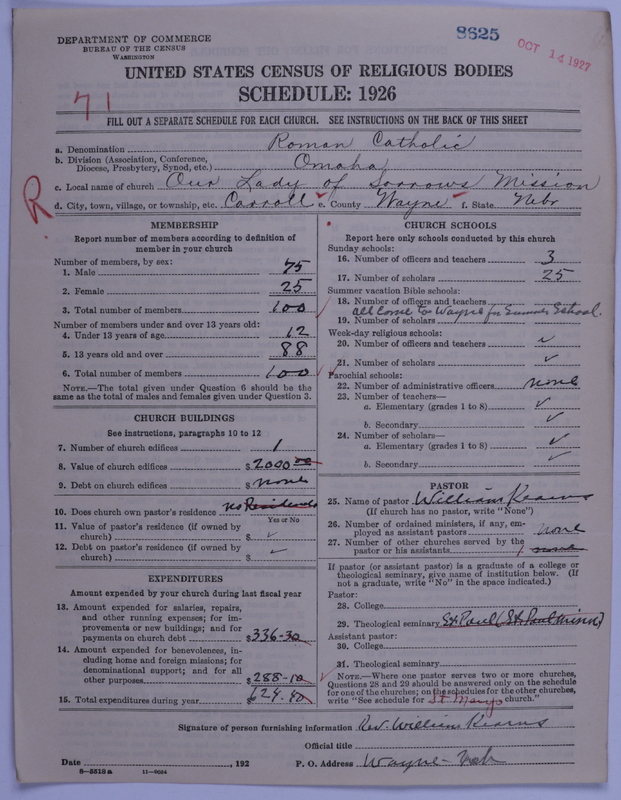 8625
OCT 14 1927
DEPARTMENT OF COMMERCE
BUREAU OF THE CENSUS
WASHINGTON
UNITED STATES CENSUS OF RELIGIOUS BODIES
SCHEDULE: 1926
71
FILL OUT A SEPARATE SCHEDULE FOR EACH CHURCH. SEE INSTRUCTIONS ON THE BACK OF THIS SHEET
a. Denomination Roman Catholic
b. Division (Association, Conference,
Diocese, Presbytery, Synod, etc.) Omaha
c. Local name of church Our Lady of Sorrows Mission
R.
d. City, town, village, or township, etc. Carroll e. County Wayne f. State Nebr
MEMBERSHIP
Report number of members according to definition of
member in your church
Number of members, by sex:
1. Male 75
2. Female 25
3. Total number of members 100
Number of members under and over 13 years old:
4. Under 13 years of age 12
5. 13 years old and over 88
6. Total number of members 100
NOTE.—The total given under Question 6 should be the
same as the total of males and females given under Question 3.
CHURCH BUILDINGS
See instructions, paragraphs 10 to 12
7. Number of church edifices 1
8. Value of church edifices $2000 00
9. Debt on church edifices $none
10. Does church own pastor's residence no Residence
Yes or No
11. Value of pastor's residence (if owned by
church) $ ✓
12. Debt on pastor's residence (if owned by
church) $ ✓
EXPENDITURES
Amount expended by your church during last fiscal year
13. Amount expended for salaries, repairs,
and other running expenses; for im-
provements or new buildings; and for
payments on church debt $336-30
14. Amount expended for benevolences, in-
cluding home and foreign missions; for
denominational support; and for all
other purposes $288-10
15. Total expenditures during year $624.40
CHURCH SCHOOLS
Report here only schools conducted by this church
Sunday schools:
16. Number of officers and teachers 3
17. Number of scholars 25
Summer vacation Bible schools:
18. Number of officers and teachers
all come to Wayne for Summer School.
19. Number of scholars
Week-day religious schools:
20. Number of officers and teachers ✓
21. Number of scholars ✓
Parochial schools:
22. Number of administrative officers none
23. Number of teachers—
a. Elementary (grades 1 to 8) ✓
b. Secondary ✓
24. Number of scholars—
a. Elementary (grades 1 to 8) ✓
b. Secondary ✓
PASTOR
25. Name of pastor William Kearns
(If church has no pastor, write "None")
26. Number of ordained ministers, if any, em-
ployed as assistant pastors none
27. Number of other churches served by the
pastor or his assistants 1 none
If pastor (or assistant pastor) is a graduate of a college or
theological seminary, give name of institution below. (If
not a graduate, write "No" in the space indicated.)
Pastor:
28. College
29. Theological seminary St Paul (St. Paul Minn)
Assistant pastor:
30. College
31. Theological seminary
NOTE.—Where one pastor serves two or more churches,
Questions 28 and 29 should be answered only on the schedule
for one of the churches; on the schedules for the other churches,
write "See schedule for St. Marys church."
Signature of person furnishing information Rev. William Kearns
Official title
Date , 192 P. O. Address Wayne-Neb
8-5518a 11-9024